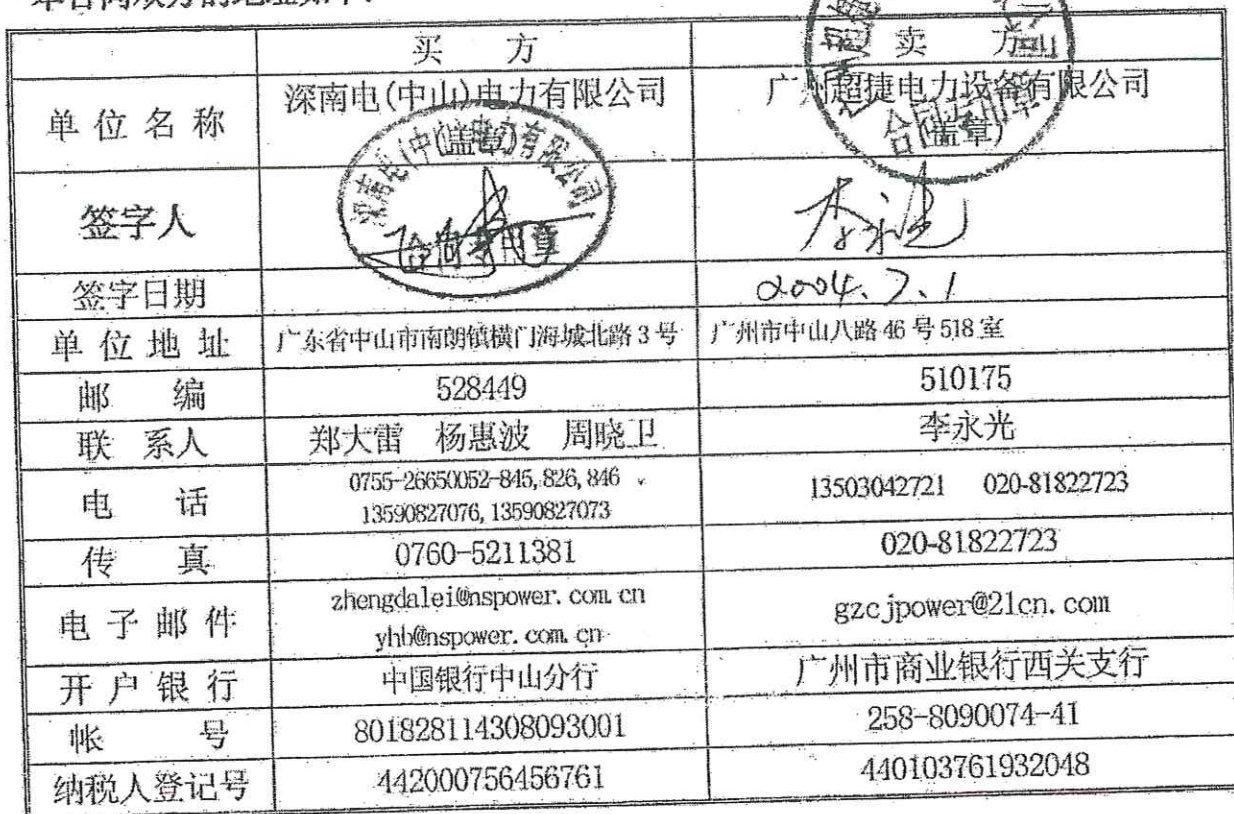 本合同双方的地址如下:
买 方 卖 方
单位名称 深南电(中山)电力有限公司 (盖章) 广州超捷电力设备有限公司 (盖章)
签字人
签字日期 2004.7.1
单位地址 广东省中山市南朗镇横门海城北路3号 广州市中山八路46号518室
邮 编 528449 510175
联 系人 郑大雷 杨惠波 周晓卫 李永光
电 话 0755-26650052-845,826,846 13590827076,13590827073 13503042721 020-81822723
传 真 0760-5211381 020-81822723
电子邮件 zhengdalei@nspower.com.cn yhb@nspower.com.cn gzcjpower@21cn.com
开户银行 中国银行中山分行 广州市商业银行西关支行
帐 号 801828114308093001 258-8090074-41
纳税人登记号 442000756456761 440103761932048
深南电(中山)电力有限公司
合同专用章